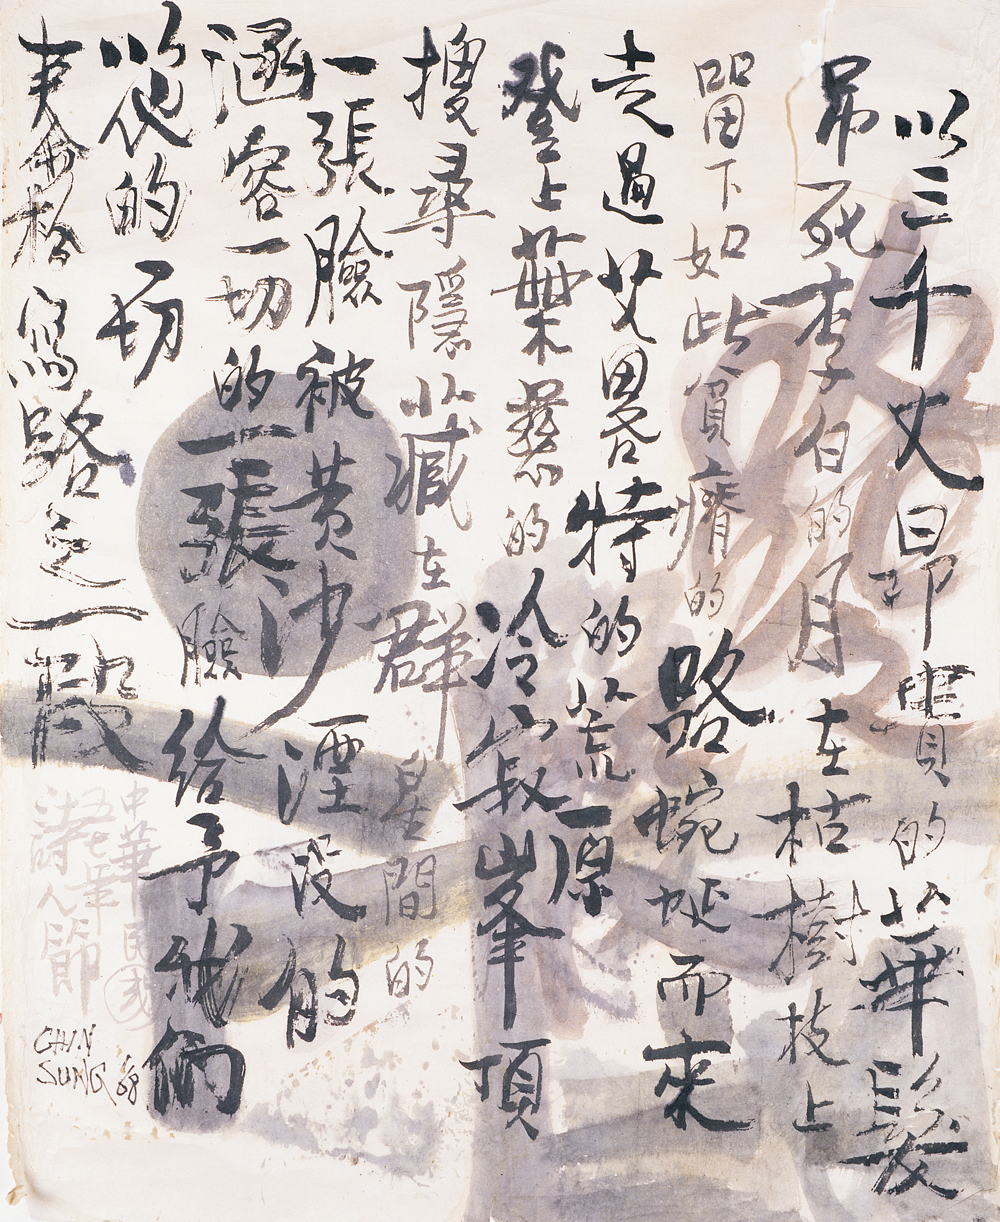 以三千丈昂貴的華髮
吊死李白的月在枯樹技上
留下如此貧瘠的路蜿蜒而來
走過艾略特的荒原
登上葉慈的冷寂峯頂
搜尋隱藏在群星間的
一張臉被黃沙湮沒的
涵容一切的一張臉給予我們
以他的一切
辛鬱寫路之一段
中華民國
五七年
詩人節
CHIN
SUNG 68